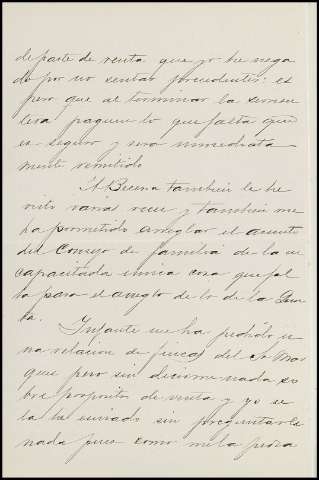 de parte de venta que yo he nega
do por no sentar precedentes: es
pero que al terminar la
paguen lo que falta que
es seguro y sera inmediata
mente remitido
A Buena tambien le he
visto varias veces y tambien me
ha prometido arreglar el asunto
del Consejo de familia de la in
capacitada unica cosa que fal
ta para el arreglo de lo de la
Infante me ha pedido u
na relacion de fincas del Sr Mar
ques pero sin decirme nada so
bre propositos de venta y yo se
la he enviado sin preguntarle
nada pues como me la pedia